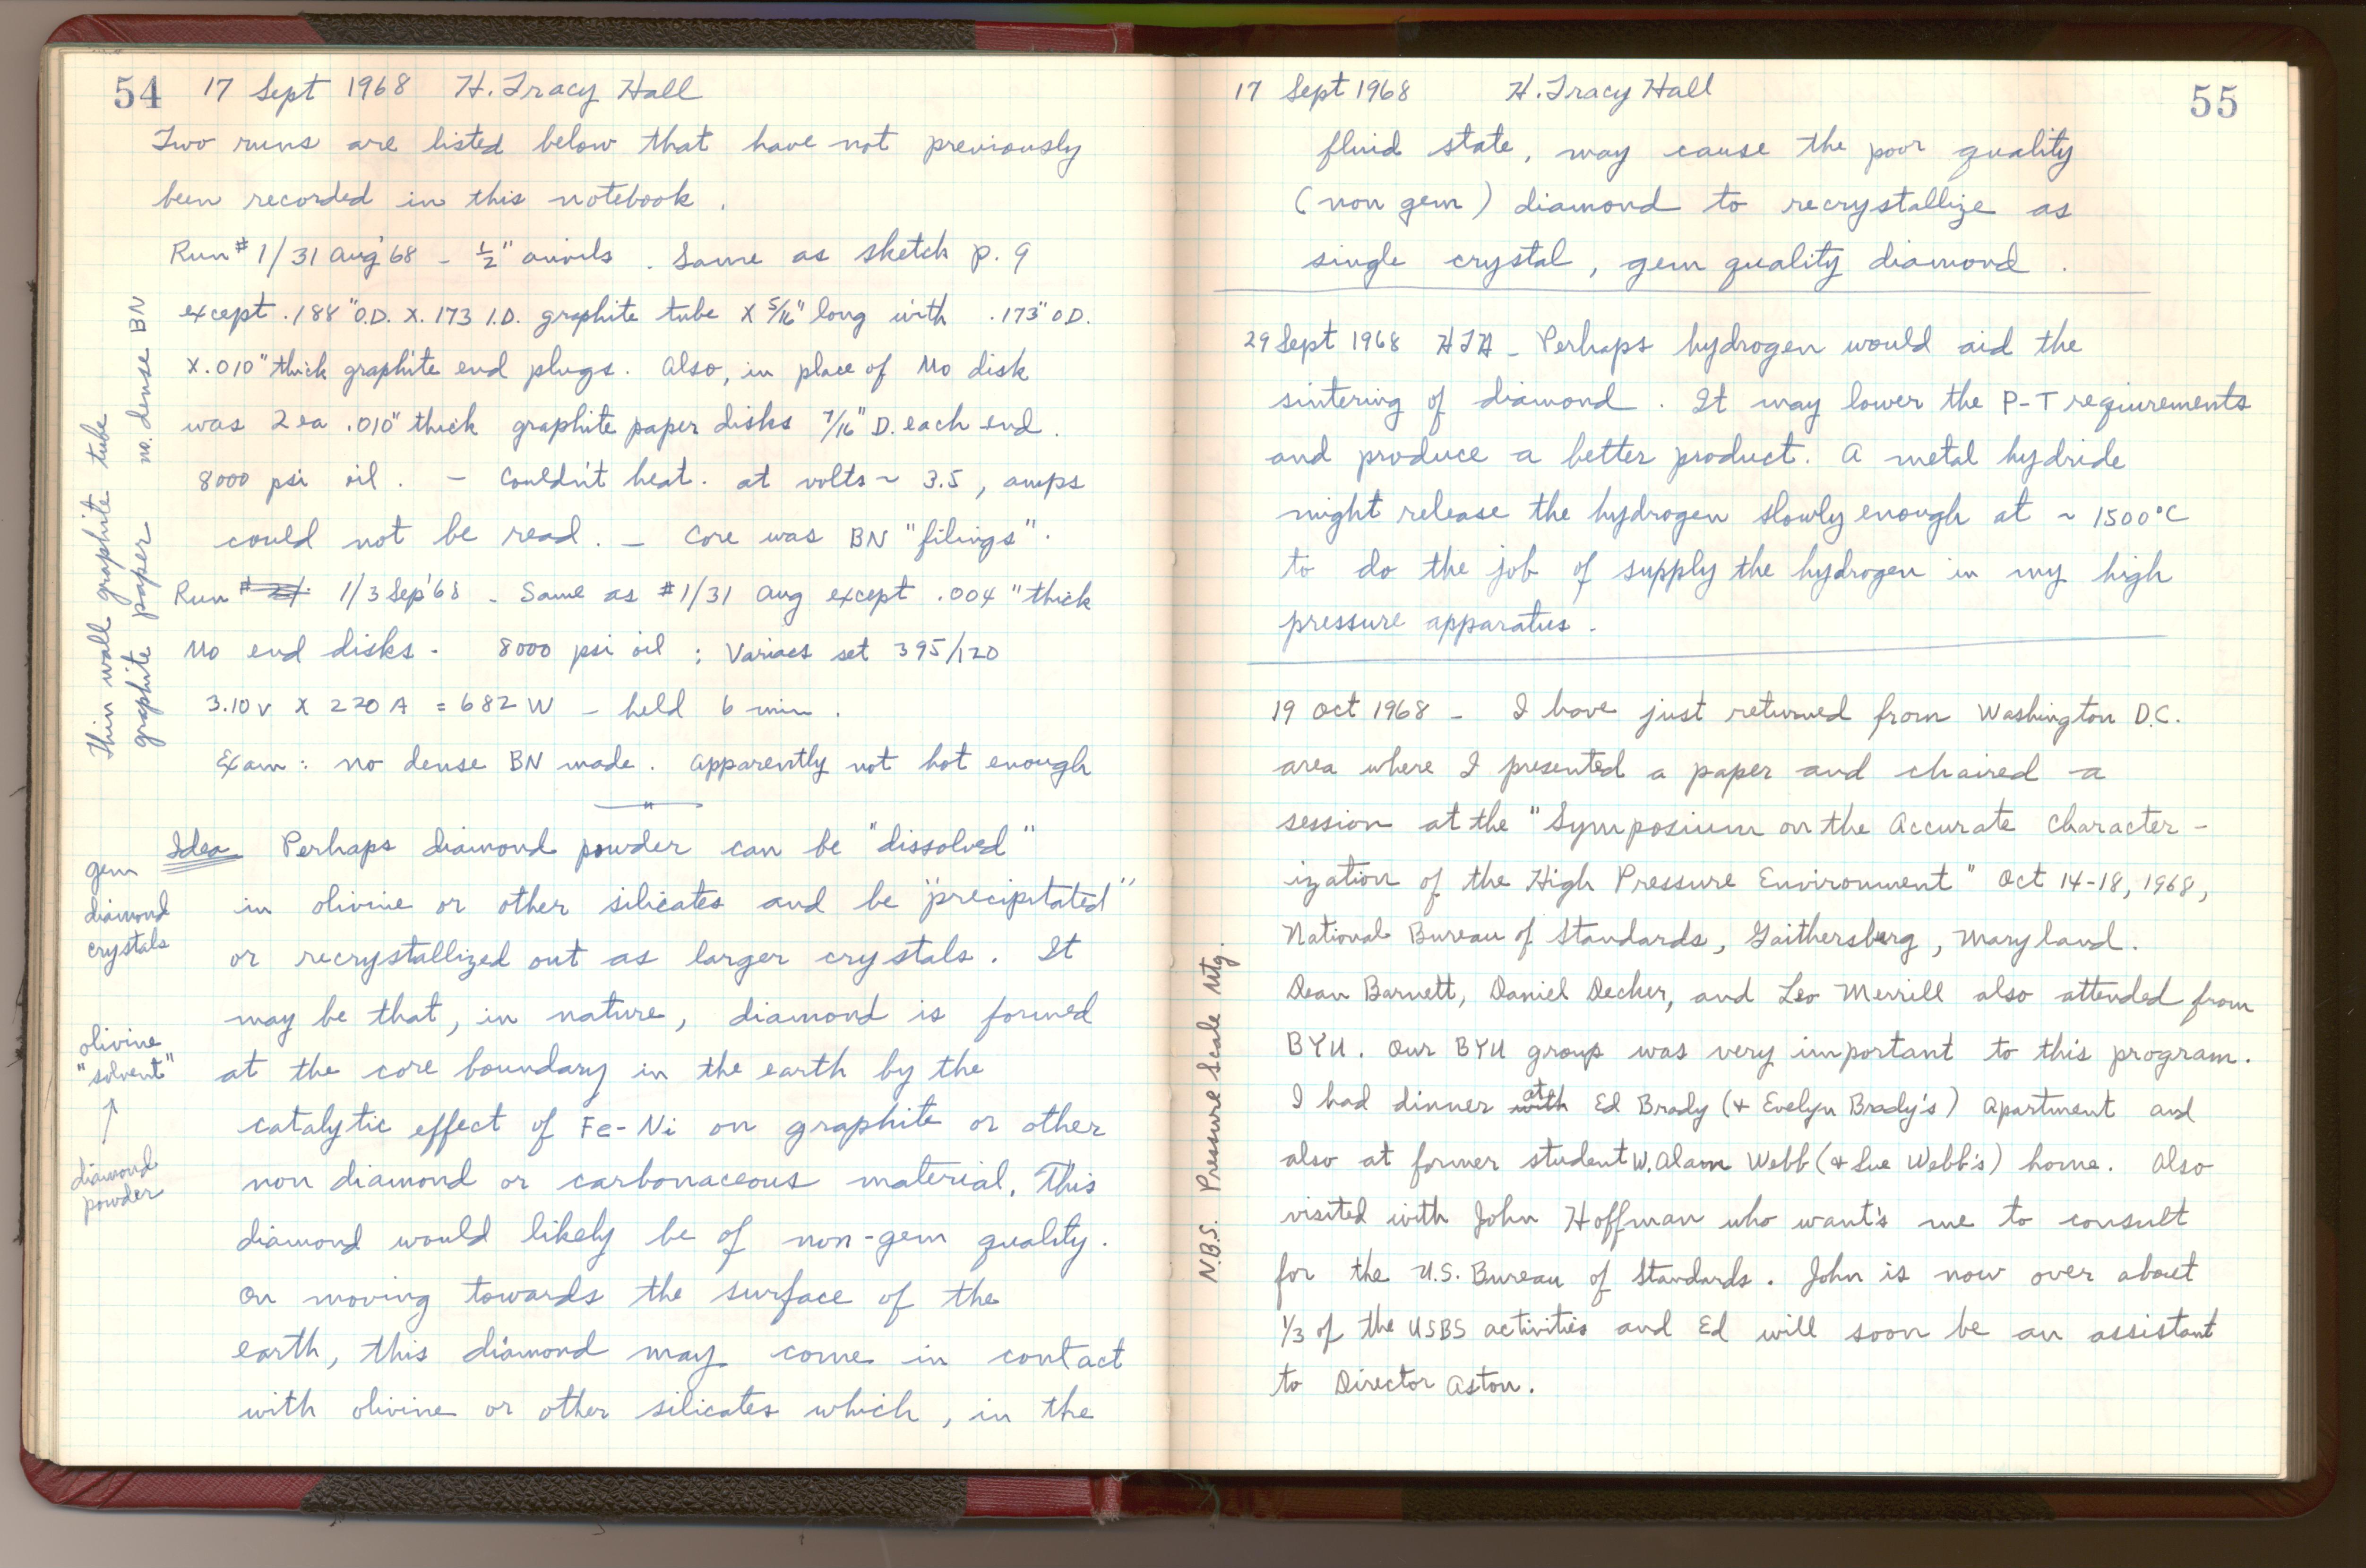 54 17 Sept 1968 H. Tracy Hall
Two runs are listed below that have not previously
been recorded in this notebook.
Run # 1/31 Aug '68 - 1/2" anvils. Same as sketch p. 9
except .188" O.D. x .173 I.D. graphite tube x 5/16" long with .173" OD.
x .010" thick graphite end plugs. Also, in place of Mo disk
was 2 ea .010" thick graphite paper disks 7/16" D. each end.
8000 psi oil. - Couldn't heat. at volts ~ 3.5, amps
could not be read. - Core was BN "filings".
Run # 1/3 Sep '68 - Same as #1/31 Aug except .004" thick
Mo end disks - 8000 psi oil; Variacs set 395/120
3.10 v x 220 A = 682 W - held 6 min.
Exam: no dense BN made. apparently not hot enough
Thin wall graphite tube
graphite paper no. dense BN
Idea Perhaps diamond powder can be "dissolved"
in olivine or other silicates and be "precipitated"
or recrystallized out as larger crystals. It
may be that, in nature, diamond is formed
at the core boundary in the earth by the
catalytic effect of Fe-Ni on graphite or other
non diamond or carbonaceous material. This
diamond would likely be of non-gem quality.
On moving towards the surface of the
earth, this diamond may come in contact
with olivine or other silicates which, in the
gem
diamond
crystals
olivine
"solvent"
↑
diamond
powder
17 Sept 1968 H. Tracy Hall 55
fluid state, may cause the poor quality
(non gem) diamond to recrystallize as
single crystal, gem quality diamond.
29 Sept 1968 HTH - Perhaps hydrogen would aid the
sintering of diamond. It may lower the P-T requirements
and produce a better product. A metal hydride
might release the hydrogen slowly enough at ~ 1500°C
to do the job of supply the hydrogen in my high
pressure apparatus.
19 Oct 1968 - I have just returned from Washington D.C.
area where I presented a paper and chaired a
session at the "Symposium on the Accurate Character-
ization of the High Pressure Environment" Oct 14-18, 1968,
National Bureau of Standards, Gaithersburg, Maryland.
Dean Barnett, Daniel Decker, and Leo Merrill also attended from
BYU. Our BYU group was very important to this program.
I had dinner with at Ed Brady (& Evelyn Brady's) Apartment and
also at former student W. Alan Webb (& Sue Webb's) home. Also
visited with John Hoffman who want's me to consult
for the U.S. Bureau of Standards. John is now over about
1/3 of the USBS activities and Ed will soon be an assistant
to Director Aston.
N.B.S. Pressure Scale Mtg.